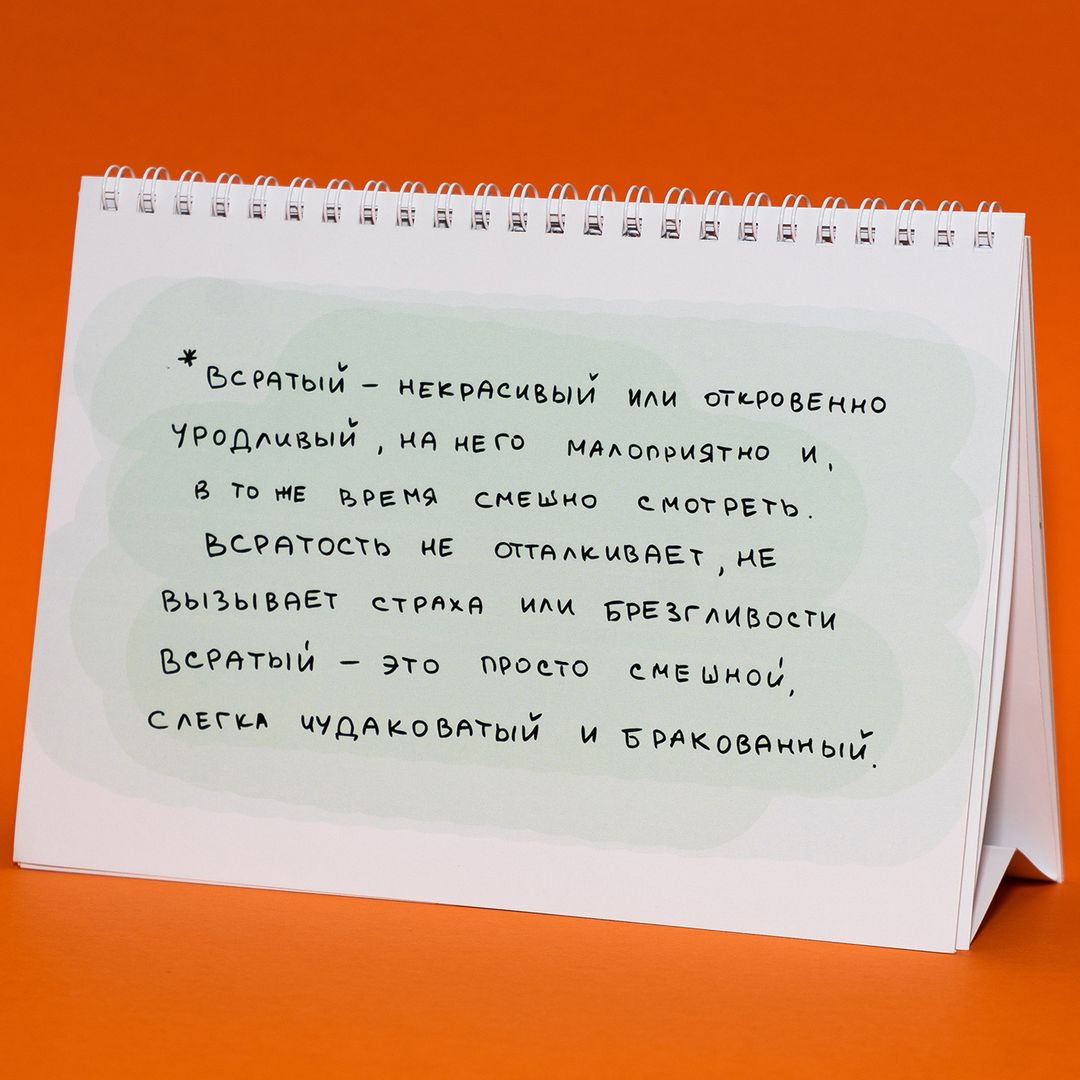 *ВСРАТЫЙ – НЕКРАСИВЫЙ ИЛИ ОТКРОВЕННО
УРОДЛИВЫЙ, НА НЕГО МАЛОПРИЯТНО И,
В ТО ЖЕ ВРЕМЯ СМЕШНО СМОТРЕТЬ.
ВСРАТОСТЬ НЕ ОТТАЛКИВАЕТ, НЕ
ВЫЗЫВАЕТ СТРАХА ИЛИ БРЕЗГЛИВОСТИ
ВСРАТЫЙ – ЭТО ПРОСТО СМЕШНОЙ,
СЛЕГКА ЧУДАКОВАТЫЙ И БРАКОВАННЫЙ.